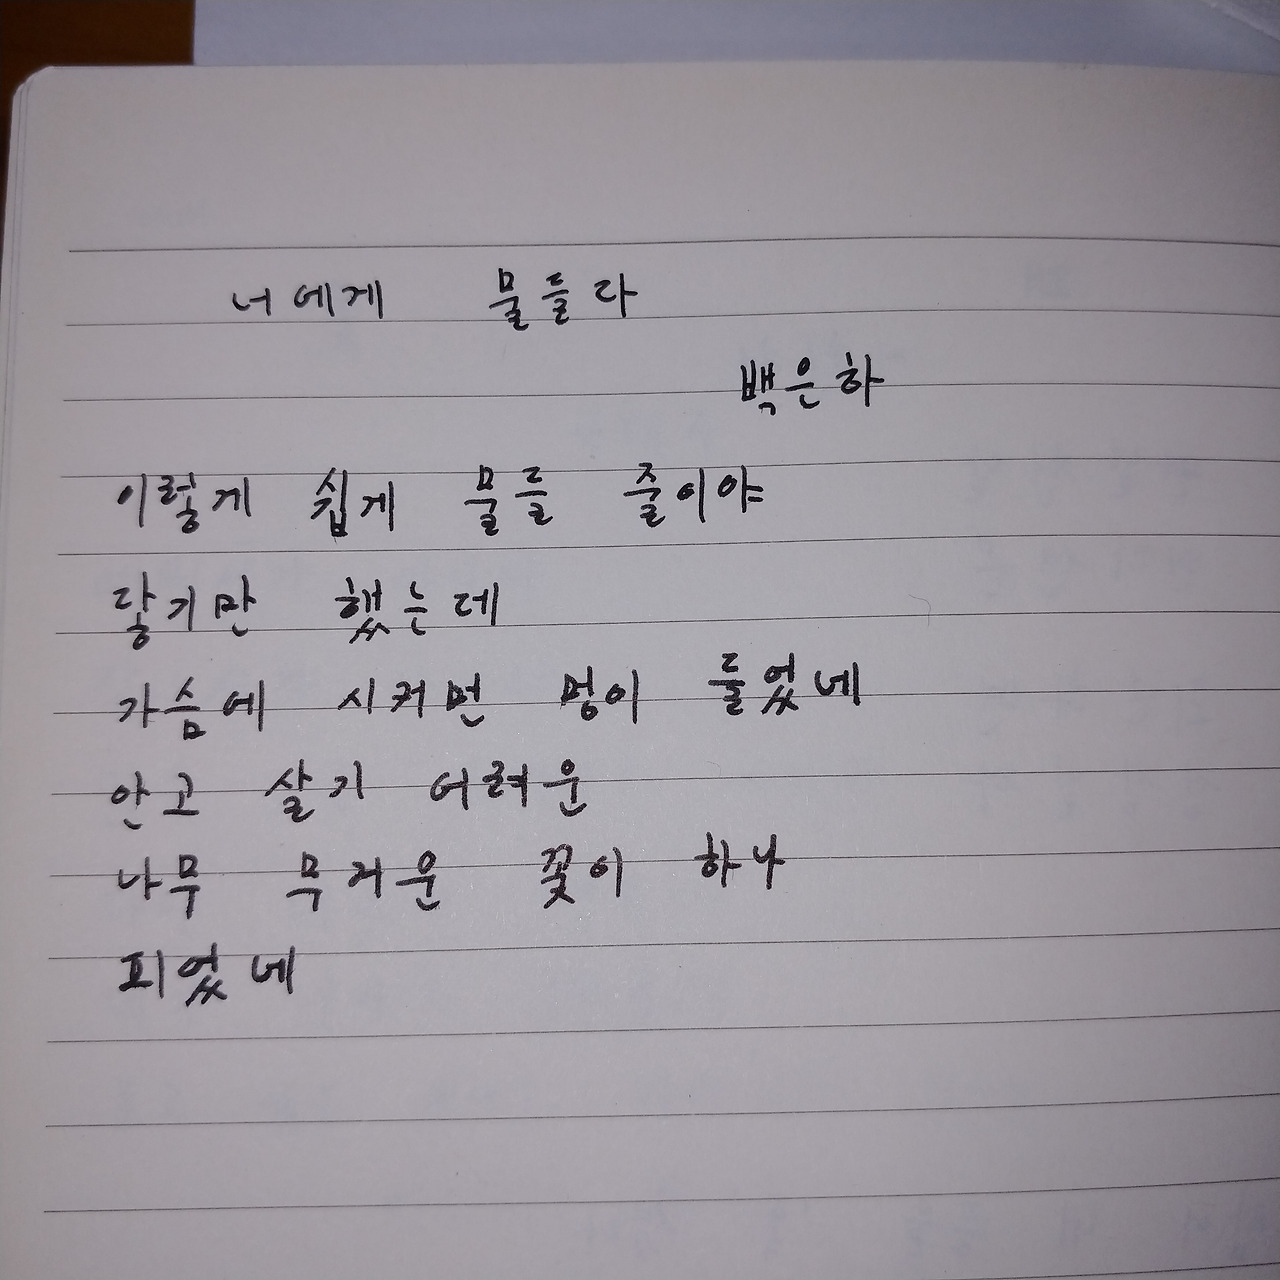 너에게 물들다
백은하
이렇게 쉽게 물들 줄이야
닿기만 했는데
가슴에 시커먼 멍이 들었네
안고 살기 어려운
나무 무거운 꽃이 하나
피었네